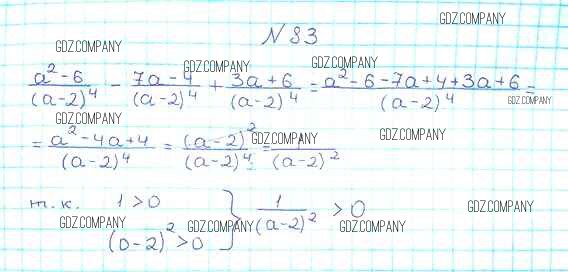 N 83
(a² - 6)/(a-2)⁴ - (7a - 4)/(a-2)⁴ + (3a + 6)/(a-2)⁴ = (a² - 6 - 7a + 4 + 3a + 6)/(a-2)⁴ =
= (a² - 4a + 4)/(a-2)⁴ = (a-2)²/(a-2)⁴ = 1/(a-2)²
т.к. 1 > 0
(a-2)² > 0 } 1/(a-2)² > 0
GDZ.COMPANY
GDZ.COMPANY
GDZ.COMPANY
GDZ.COMPANY
GDZ.COMPANY
GDZ.COMPANY
GDZ.COMPANY
GDZ.COMPANY
GDZ.COMPANY
GDZ.COMPANY
GDZ.COMPANY
GDZ.COMPANY